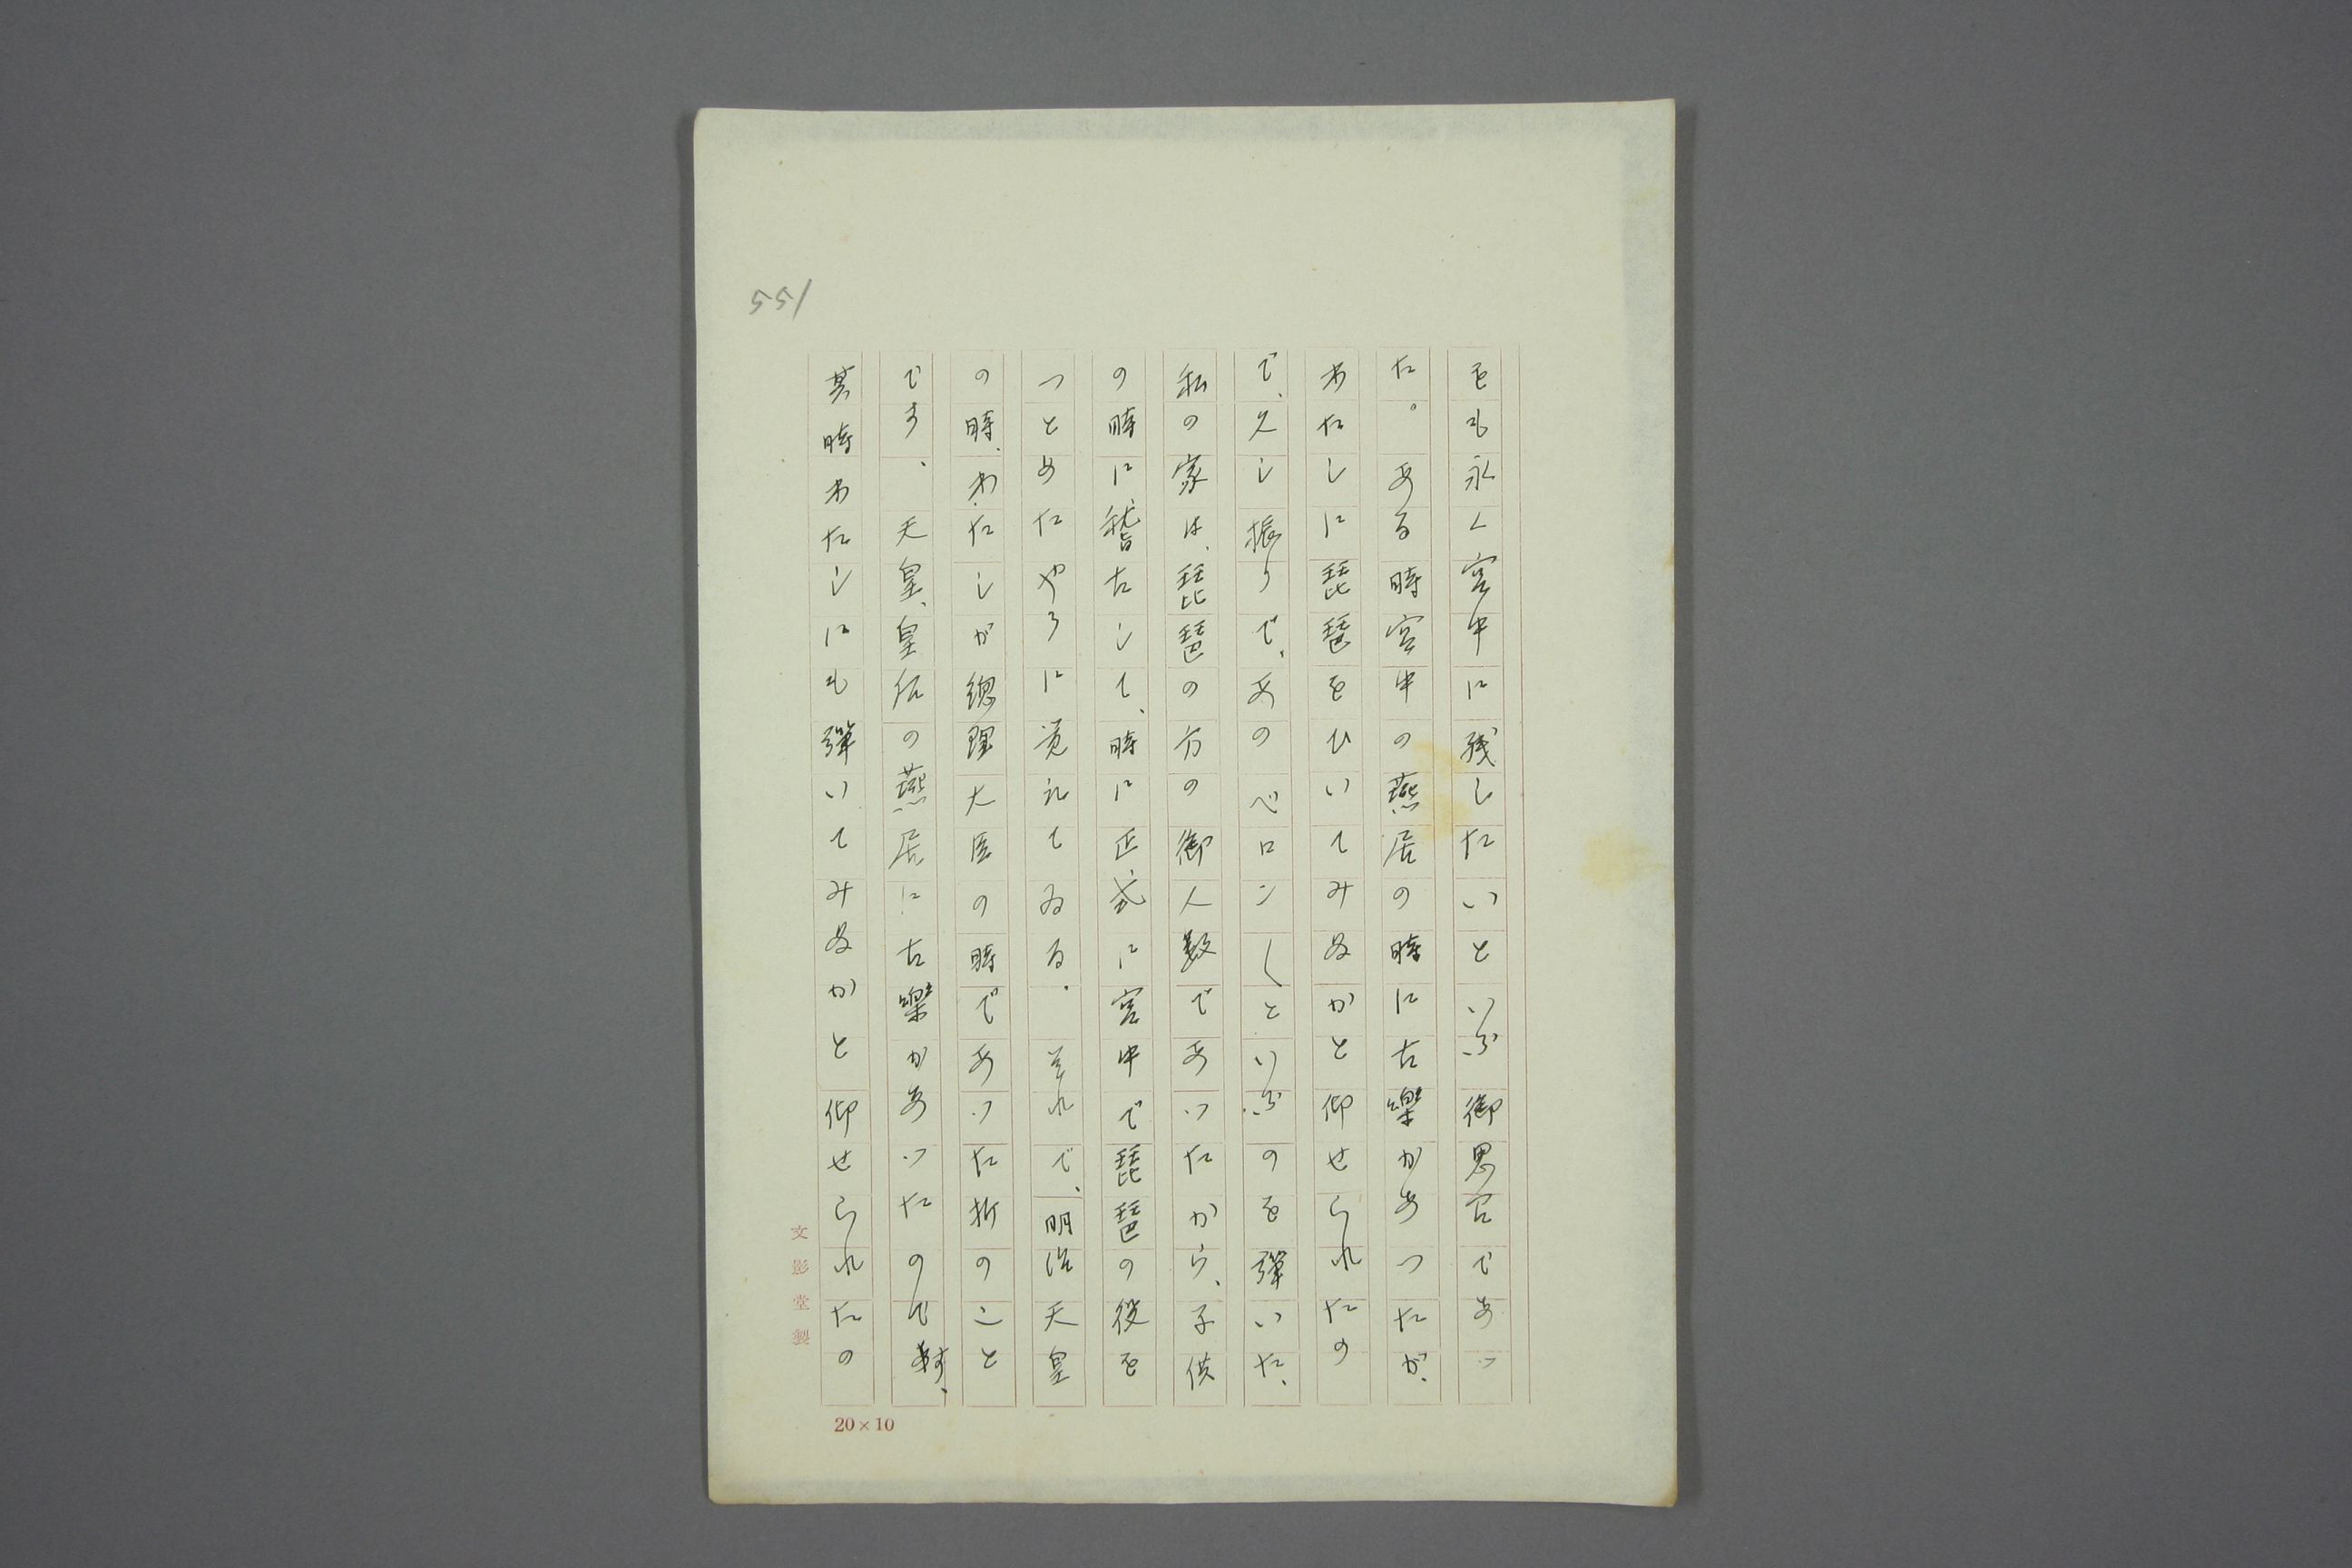 551
をも永く宮中に残したいといふ御思召であつ
た。ある時宮中の燕居の時に古樂があつたが、
わたしに琵琶をひいてみぬかと仰せられたの
で、久し振りで、あのベロン〳〵といふのを彈いた、
私の家は、琵琶の方の御人数であつたから、子供
の時に稽古して、時に正式に宮中で琵琶の役を
つとめたやうに覚えてゐる。それで、明治天皇
の時、わたしが總理大臣の時であつた折のこと
です、天皇、皇后の燕居に古樂があつたのです、
其時わたしにも彈いてみぬかと仰せられたの
文影堂製
20×10